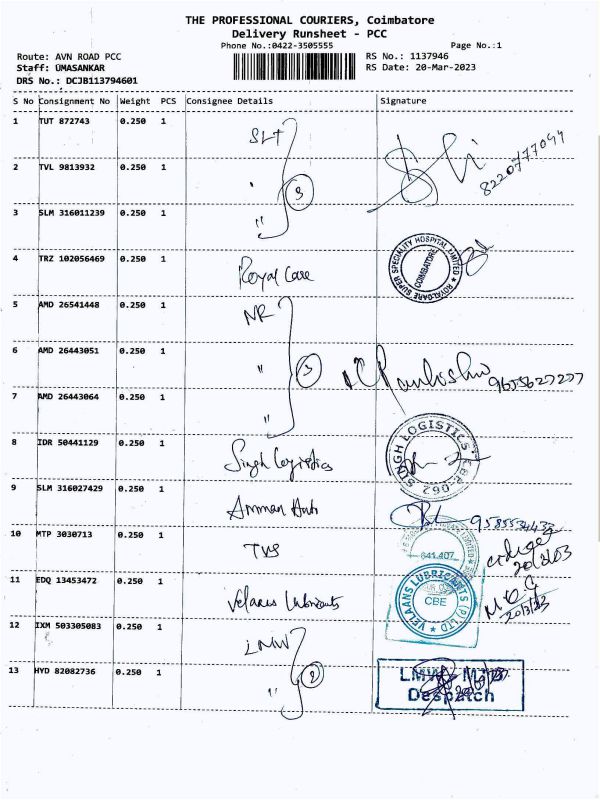 THE PROFESSIONAL COURIERS, Coimbatore
Delivery Runsheet - PCC
Phone No.:0422-3505555
Page No.:1
Route: AVN ROAD PCC
RS No.: 1137946
Staff: UMASANKAR
RS Date: 20-Mar-2023
DRS No.: DCJB113794601
S No Consignment No Weight PCS Consignee Details Signature
1 TUT 872743 0.250 1 SLT
8220777094
2 TVL 9813932 0.250 1 "
3
3 SLM 316011239 0.250 1 "
4 TRZ 102056469 0.250 1 Royal Care
ROYALCARE SUPER SPECIALITY HOSPITAL LIMITED
COIMBATORE
5 AMD 26541448 0.250 1 NR
6 AMD 26443051 0.250 1 "
3
9655627277
7 AMD 26443064 0.250 1 "
8 IDR 50441129 0.250 1 Singh Logistics
SINGH LOGISTICS
9 SLM 316027429 0.250 1 Amman Auto
9585534433
10 MTP 3030713 0.250 1 TVS
641 407
11 EDQ 13453472 0.250 1 Velaans Lubricants
VELAANS LUBRICANTS (P) LTD
CBE
20/3/23
12 IXM 503305083 0.250 1 LMW
13 HYD 82082736 0.250 1 "
2
LMW MTD
Despatch